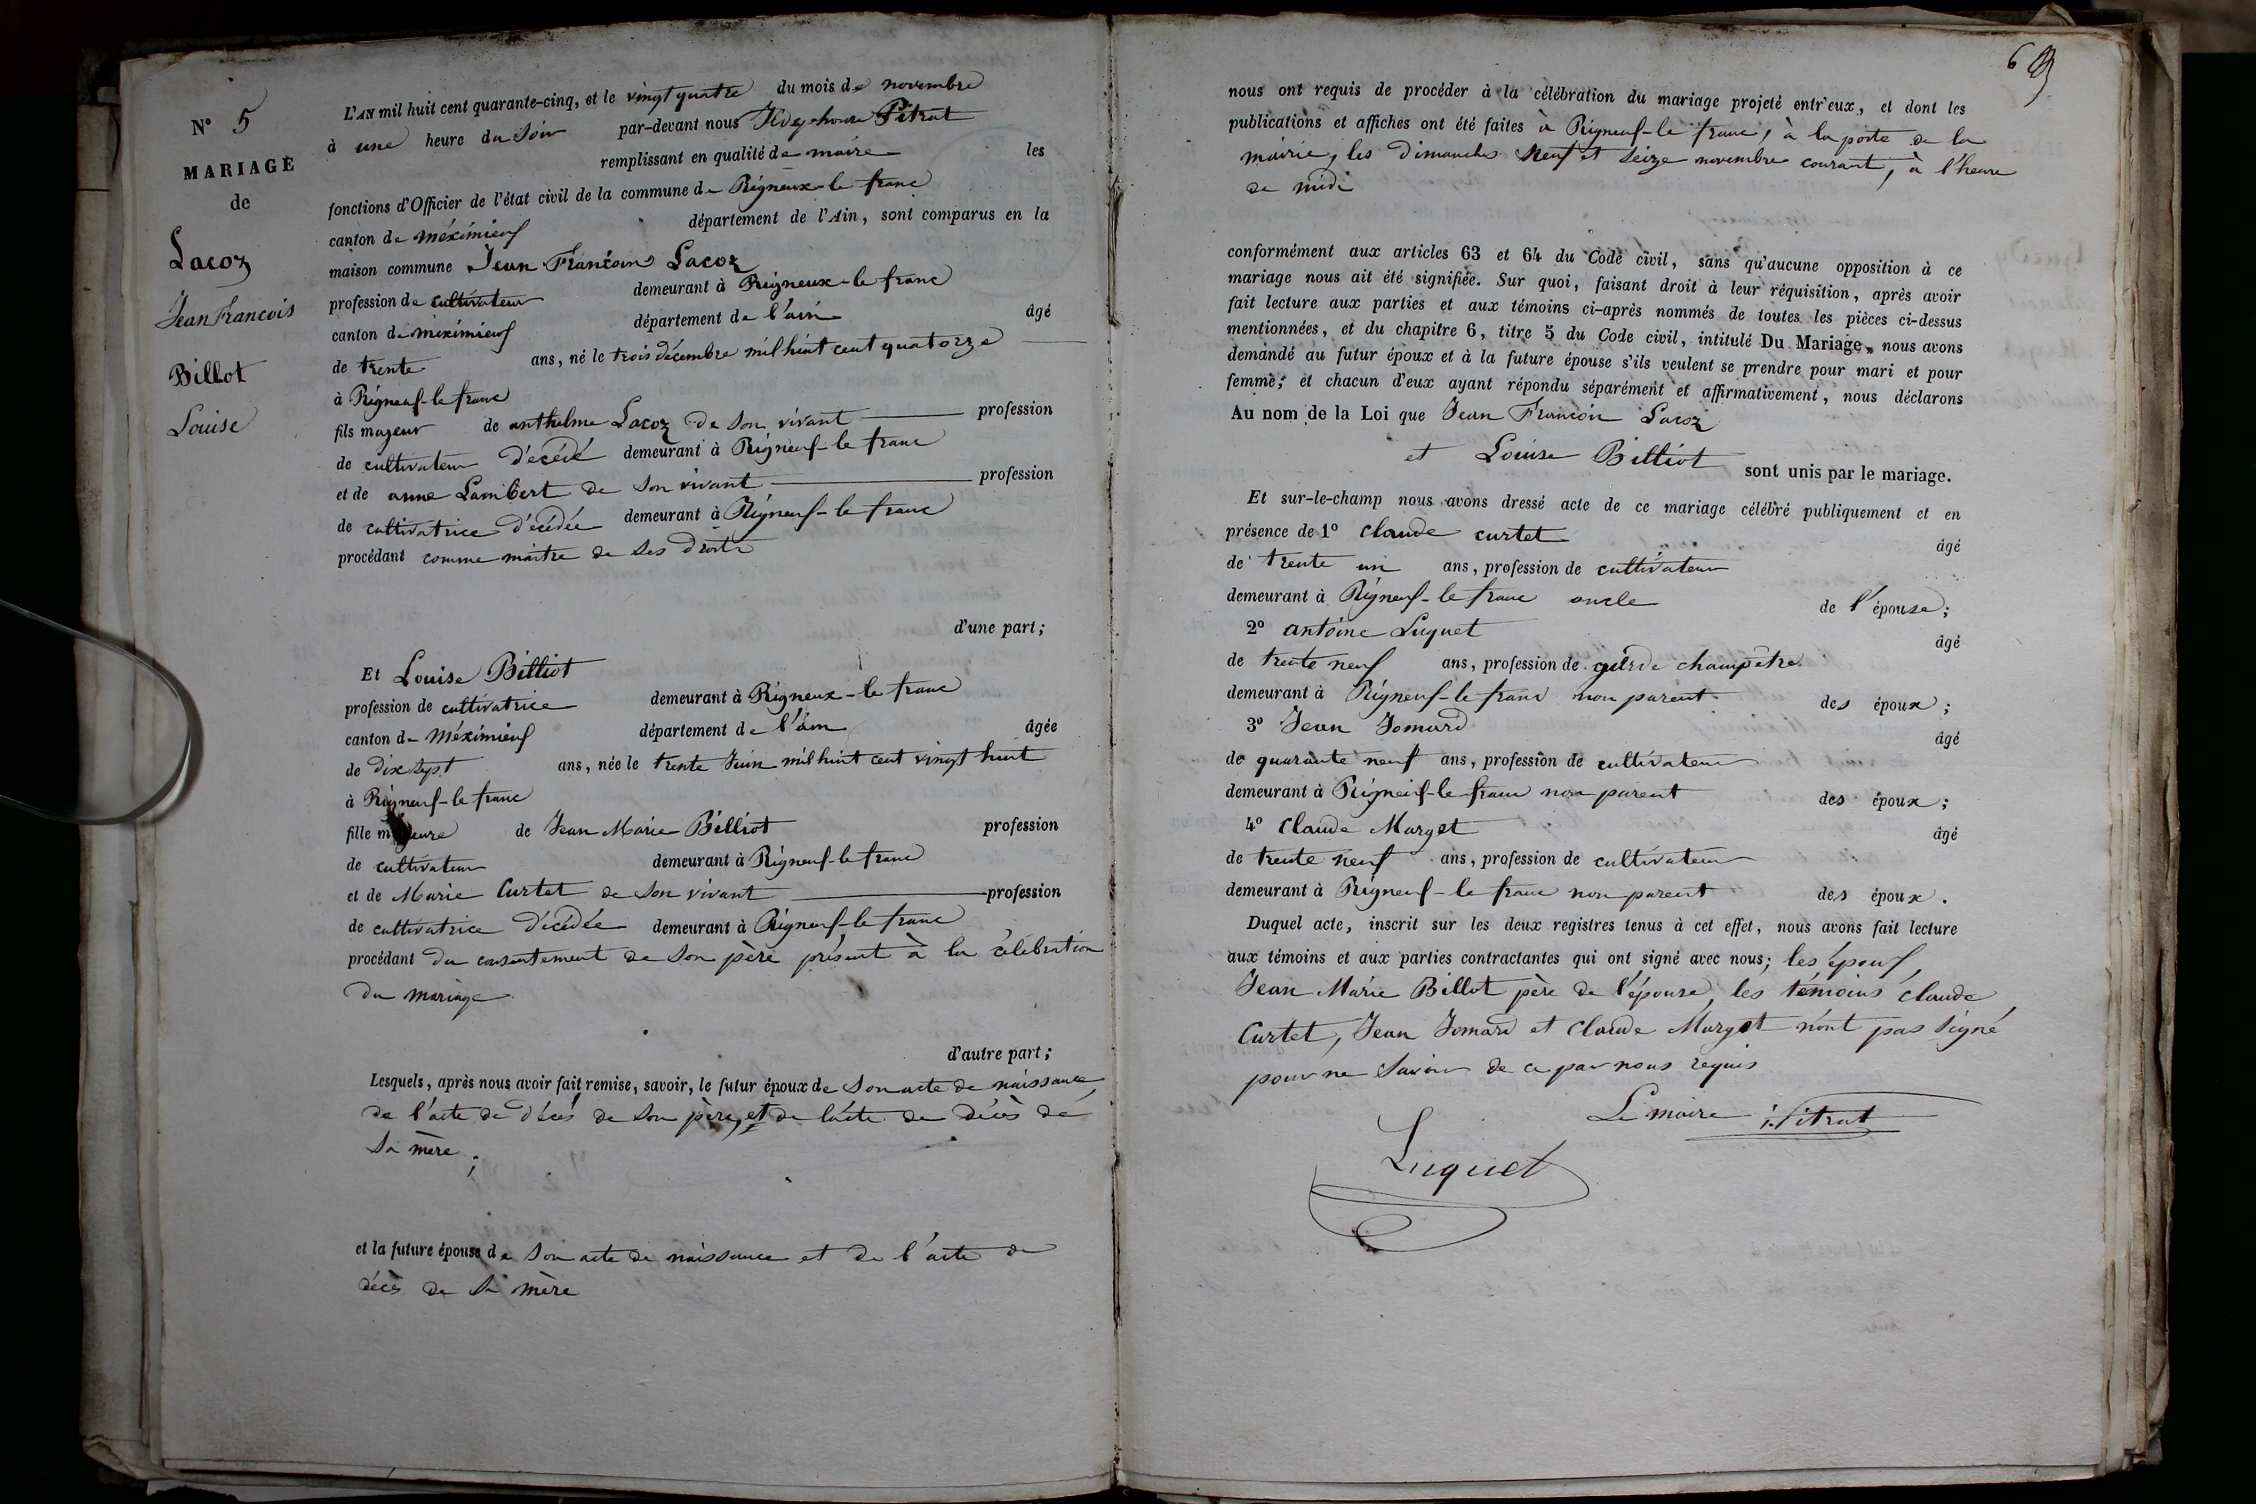 N° 5
MARIAGE
de
Lacoz
Jean Francois
Billot
Louise
L'AN mil huit cent quarante-cinq, et le vingt quatre du mois de novembre
à une heure du Soir par-devant nous Pitrat
remplissant en qualité de maire les
fonctions d'Officier de l'état civil de la commune de Rigneux-le franc
canton de méximieuf département de l'Ain, sont comparus en la
maison commune Jean François Lacoz
profession de cultivateur demeurant à Rigneux-le franc
canton de meximieuf département de l'ain âgé
de trente ans, né le trois décembre mil huit cent quatorze
à Rigneuf-le franc
fils majeur de anthelme Lacoz de Son vivant profession
de cultivateur décédé demeurant à Rigneuf-le franc
et de anne Lambert de Son vivant profession
de cultivatrice décédée demeurant à Rigneuf-le franc
procédant comme maitre de Ses droits
d'une part;
Et Louise Billiot
profession de cultivatrice demeurant à Rigneux-le franc
canton de Méximieuf département de l'ain âgée
de dix sept ans, née le trente Juin mil huit cent vingt huit
à Rigneuf-le franc
fille mineure de Jean Marie Billiot profession
de cultivateur demeurant à Rigneuf-le franc
et de Marie Curtet de Son vivant profession
de cultivatrice décédée demeurant à Rigneuf-le franc
procédant du consentement de Son père présent à la célébration
du mariage
d'autre part;
Lesquels, après nous avoir fait remise, savoir, le futur époux de Son acte de naissance,
de l'acte de décès de Son père, et de l'acte de décès de
Sa mère;
et la future épouse de Son acte de naissance et de l'acte de
décès de Sa mère
6
nous ont requis de procéder à la célébration du mariage projeté entr'eux, et dont les
publications et affiches ont été faites à Rigneuf-le franc, à la porte de la
mairie, les dimanches Neuf et Seize novembre courant, à l'heure
de midi
conformément aux articles 63 et 64 du Code civil, sans qu'aucune opposition à ce
mariage nous ait été signifiée. Sur quoi, faisant droit à leur réquisition, après avoir
fait lecture aux parties et aux témoins ci-après nommés de toutes les pièces ci-dessus
mentionnées, et du chapitre 6, titre 5 du Code civil, intitulé Du Mariage, nous avons
demandé au futur époux et à la future épouse s'ils veulent se prendre pour mari et pour
femme; et chacun d'eux ayant répondu séparément et affirmativement, nous déclarons
Au nom de la Loi que Jean François Lacoz
et Louise Billiot sont unis par le mariage.
Et sur-le-champ nous avons dressé acte de ce mariage célébré publiquement et en
présence de 1° claude curtet âgé
de trente un ans, profession de cultivateur
demeurant à Rigneuf-le franc oncle de l'épouse;
2° antoine Luquet âgé
de trente neuf ans, profession de garde champêtre
demeurant à Rigneuf-le franc non parent des époux;
3° Jean Jomard âgé
de quarante neuf ans, profession de cultivateur
demeurant à Rigneuf-le franc non parent des époux;
4° claude Marget âgé
de trente neuf ans, profession de cultivateur
demeurant à Rigneuf-le franc non parent des époux.
Duquel acte, inscrit sur les deux registres tenus à cet effet, nous avons fait lecture
aux témoins et aux parties contractantes qui ont signé avec nous; les épouf,
Jean Marie Billot père de l'épouse, les témoins claude
Curtet, Jean Jomard et claude Marget n'ont pas signé
pour ne Savoir de ce par nous requis
Le maire Pitrat
Luquet